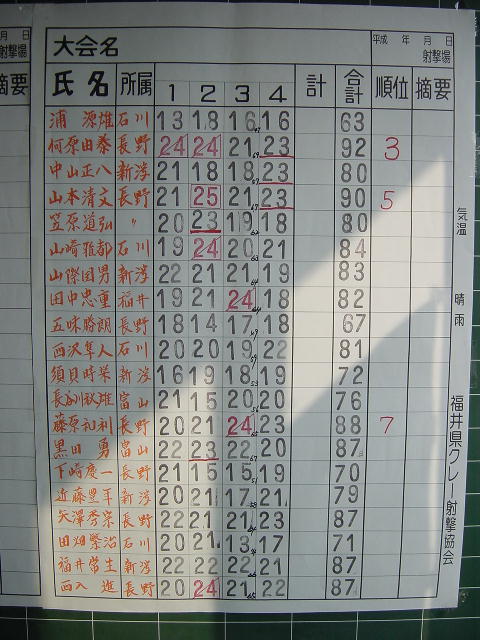 月 日
射撃場
摘要
大会名
平成 年 月 日
射撃場
氏名 所属 1 2 3 4 計 合計 順位 摘要
浦 源雄 石川 13 18 16 16 63
何原由泰 長野 24 24 21 23 92 3
中山正八 新潟 21 18 18 23 80
山本清文 長野 21 25 21 23 90 5
笠原道弘 〃 20 23 19 18 80
山崎雅都 石川 19 24 20 21 84
山際国男 新潟 22 21 21 19 83
田中忠重 福井 19 21 24 18 82
五味勝朗 長野 18 14 17 18 67
西沢隼人 石川 20 20 19 22 81
須貝時栄 新潟 16 19 18 19 72
長谷川秋雄 富山 21 15 20 20 76
藤原礼利 長野 20 21 24 23 88 7
黒田 勇 富山 22 23 22 20 87
下崎慶一 長野 21 15 15 19 70
近藤豊平 新潟 20 21 17 21 79
矢澤秀宗 長野 22 21 21 23 87
田畑繁治 石川 20 21 13 17 71
福井常生 新潟 22 22 22 21 87
西入 進 長野 20 24 21 22 87
気温
晴雨
福井県クレー射撃協会